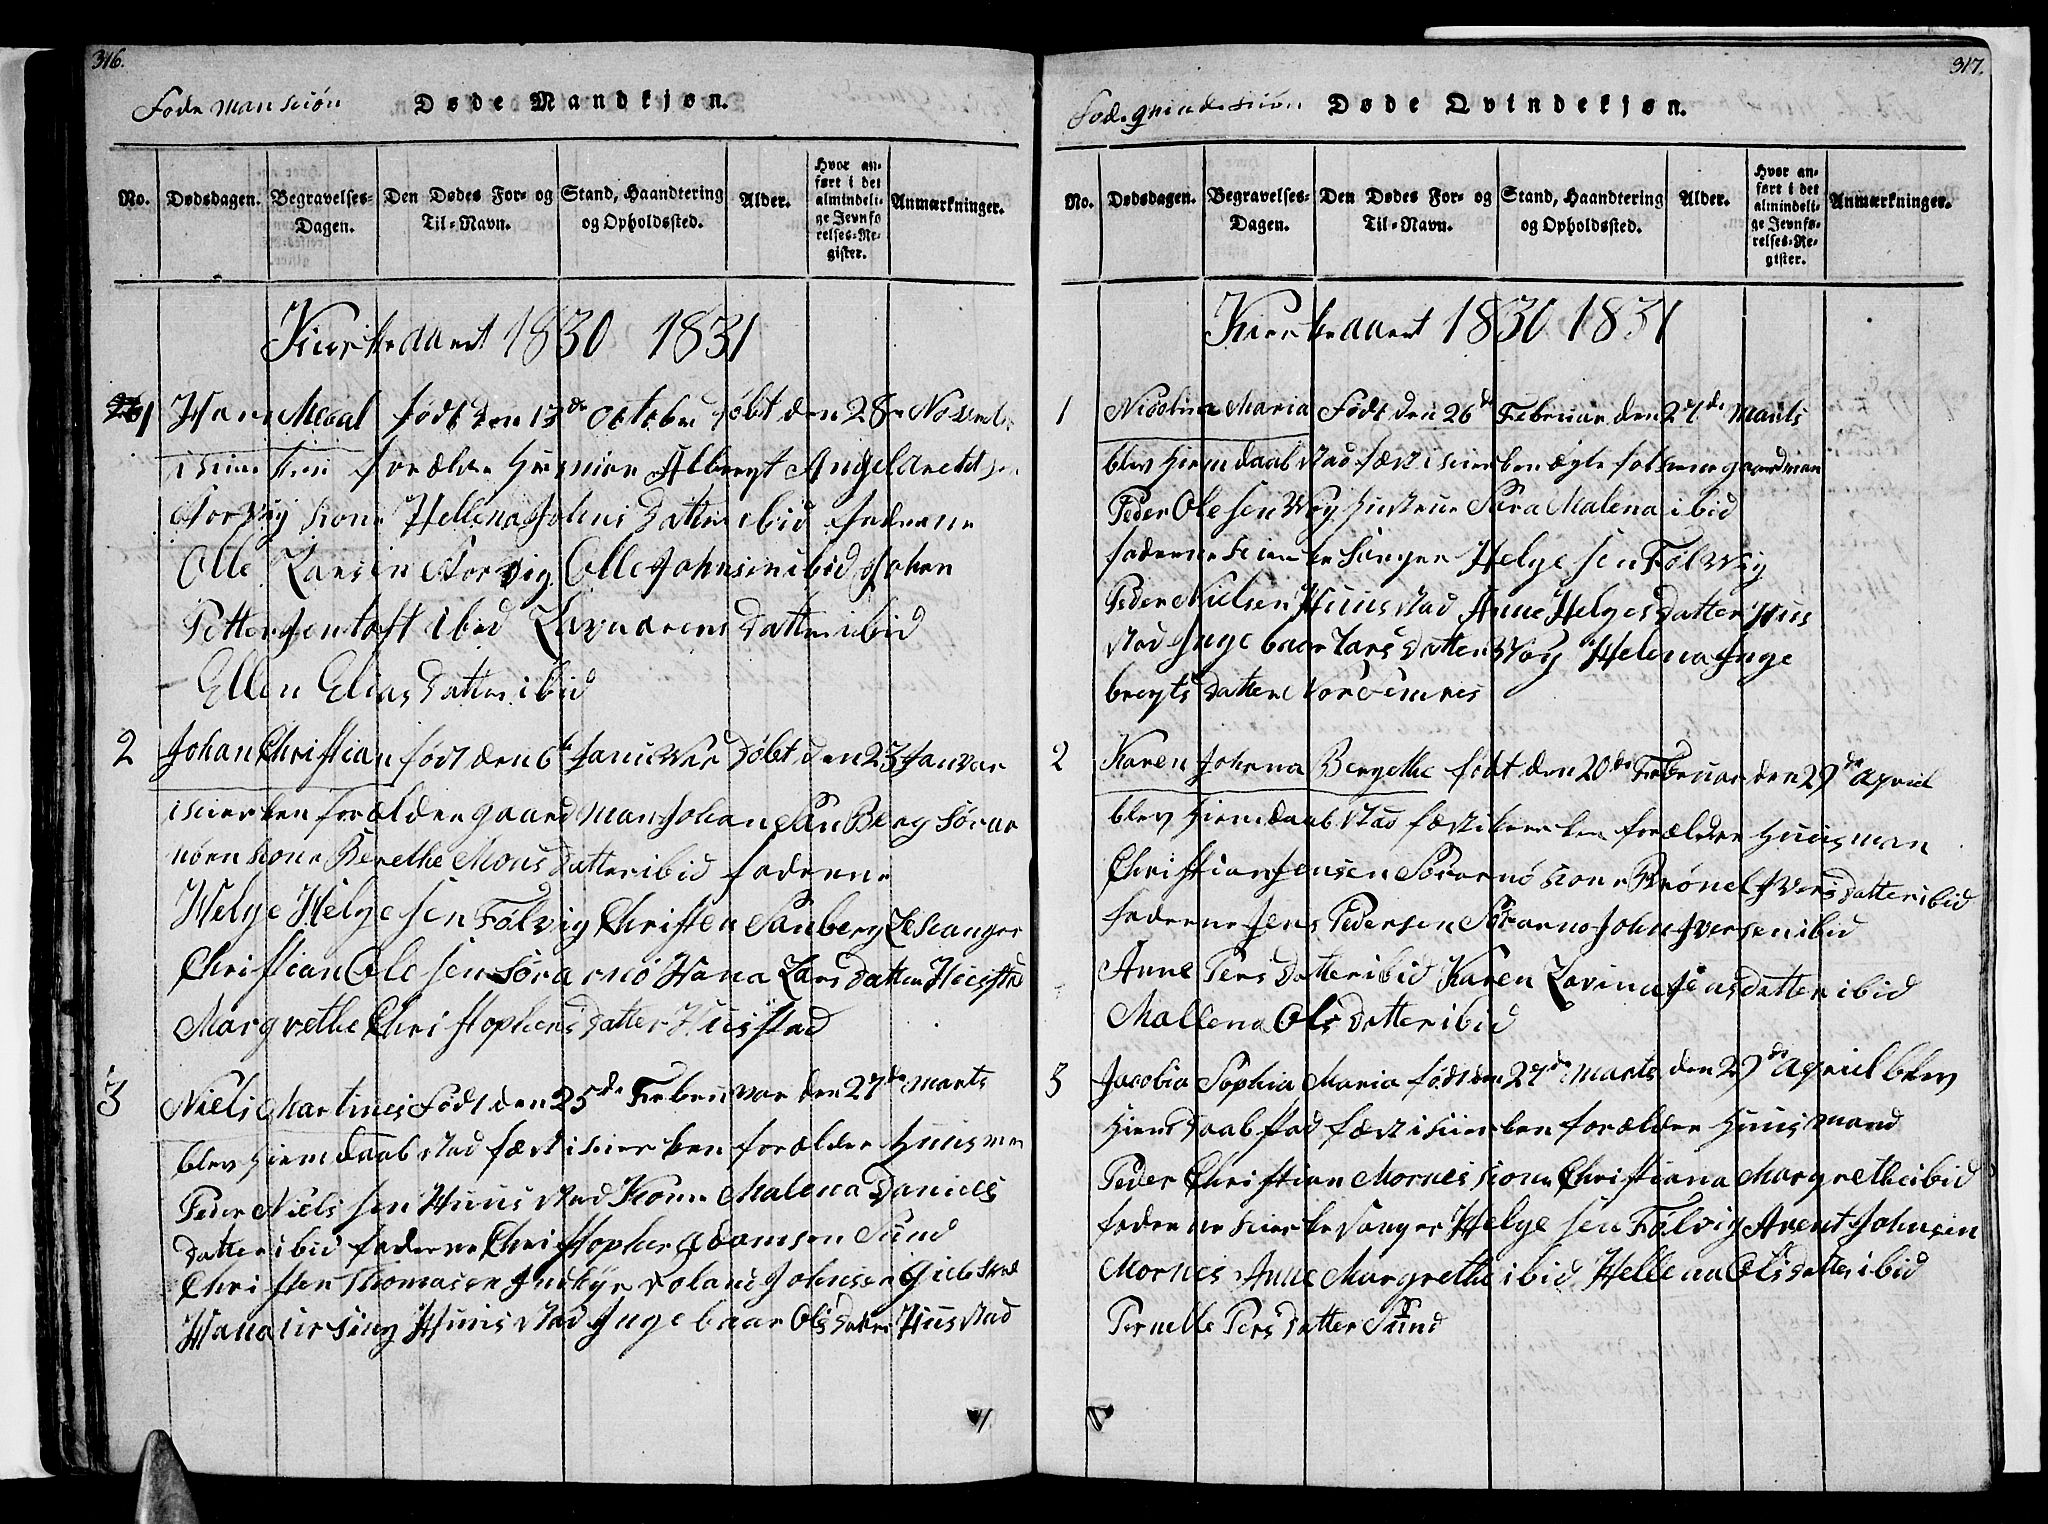 316.
Føde Manskiøn Døde Mandkjøn.
No. Dødsdagen. Begravelses-Dagen. Den Dødes For- og Til-Navn. Stand, Haandtering og Opholdssted. Alder. Hvor anført i det almindelige Jevnførelses-Register. Anmærkninger.
Kierkeaaret 1830 1831
1 Hans Meeal født den 13de October døbt den 28de Novembr
i kierken forældre Albregt Angel
Torvig kone Hellena Johns datter ibid faderne
Olle Larsen Torvig Olle Johnsen ibid Johan
Pettersen toft ibid Lars datter ibid
Ellen Elias datter ibid
2 Johan Christian født den 6te Januvar døbt den 23 Janvar
i kierken forælder gaardman Johan San Berg Sørar
nøen kone Berethe Mons datter ibid faderne
Helge Helgesen Følvig Christen Sanberg Leskanger
Christian Olesen Sørarnø Hana Lars datter Huusstad
Margrethe Christophers datter Huusstad
3 Niels Martines Født den 25de Februvar den 27de marts
blev hiemdaab stadfæst i kierken forælder Huusman
Peder Nielssen Huusstad Kone Malena Daniels
datter ibid faderne Christopher Adamsen Sund
Christen Thomasen Roland Johnsen
Hana Huusstad Ingebaar Ols datter Huusstad
317.
Føde qvindeskiøn Døde Qvindekjøn.
No. Dødsdagen. Begravelses-Dagen. Den Dødes For- og Til-Navn. Stand, Haandtering og Opholdssted. Alder. Hvor anført i det almindelige Jevnførelses-Register. Anmærkninger.
Kierkeaaret 1830 1831
1 Nicolina Maria Født den 26de Februar den 27de Marts
blev hiemdaab stadfæst i kierken ægte folkene gaardman
Peder Olesen Vog Hustrue Sara Malena ibid
faderne kierkesanger Helgesen Følwig
Peder Nielsen Huusstad Anne Helgesdatter Hus
stad Ingebaar Larsdatter Vog Helena Inge
bregts datter Nordimnes
2 Karen Johana Bergethe født den 20de Februar den 29de Apriel
blev hiemdaab stadfæst i kierken forælder Huusman
Christian Jensen Sørarnø kone Brønel Ivers datter ibid
faderne Jens Pedersen Sørarnø John Iversen ibid
Anne Pers datter ibid Karen Lovina Jensdatter ibid
Mallena Ols datter ibid
3 Jacobia Sophia Maria født den 27de Marts den 29de Apriel blev
hiemdaab stadfæst i kierken forælder Huusmand
Peder Christian Mornes kone Christiana Margrethe ibid
faderne kierkesanger Helgesen Følvig Arent Johnsen
Mornes Anne Margrethe ibid Hellena Ols datter ibid
Pernelle Pers datter Sund